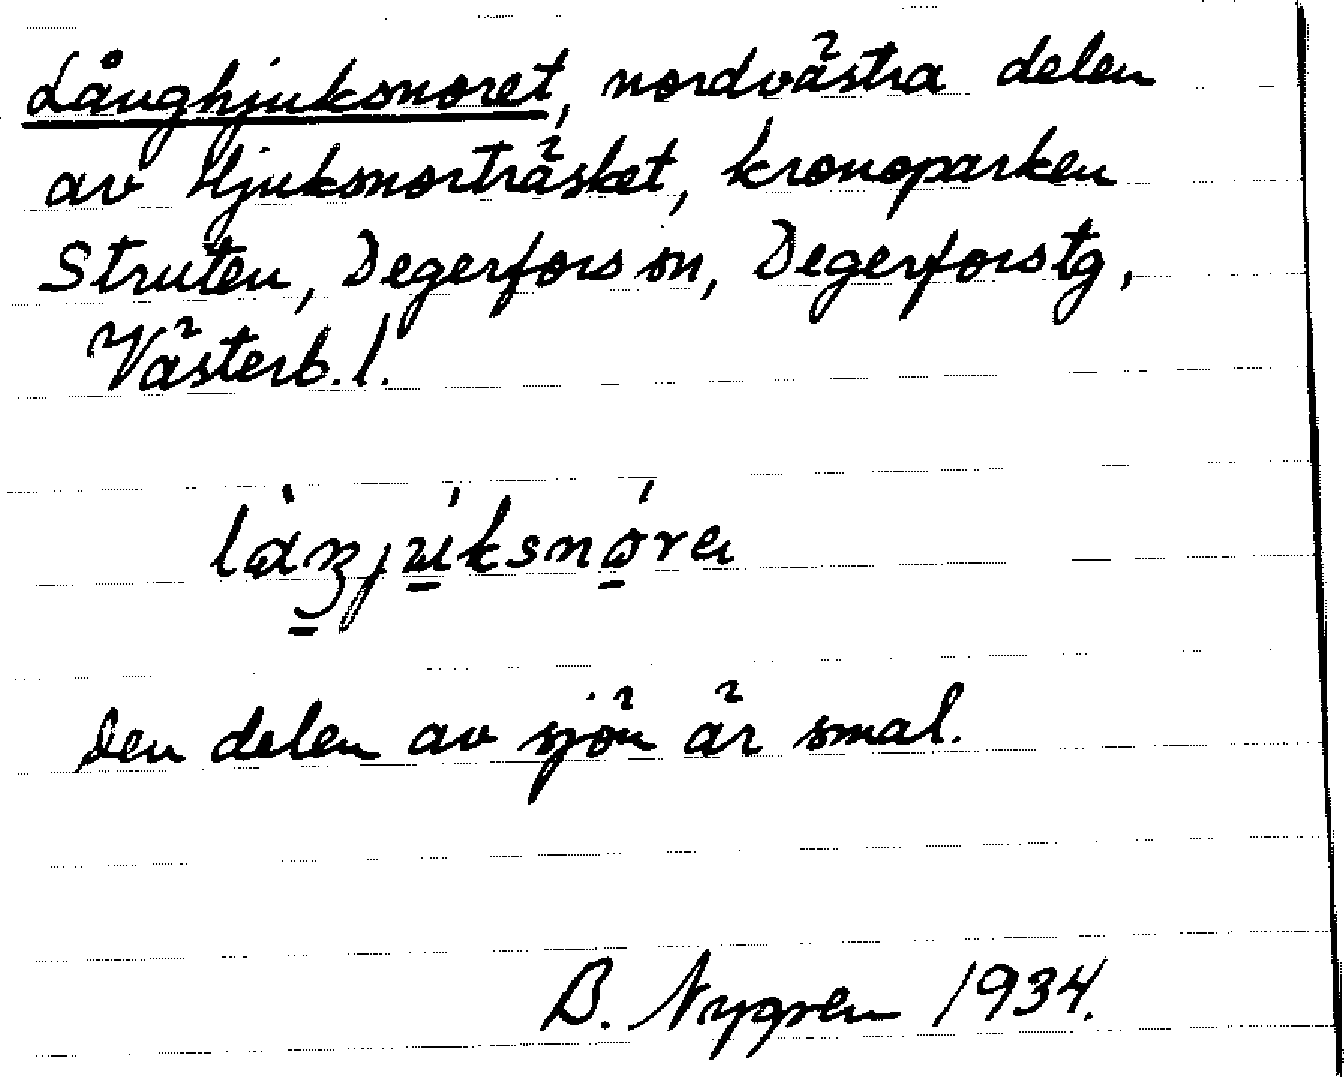 Långhjuksmoret, nordvästra delen
av Hjuksmorträsket, kronoparken
Struten, Degerfors sn, Degerforstg,
Västerb. l.
Den delen av sjön är smal.
B. Nygren 1934.